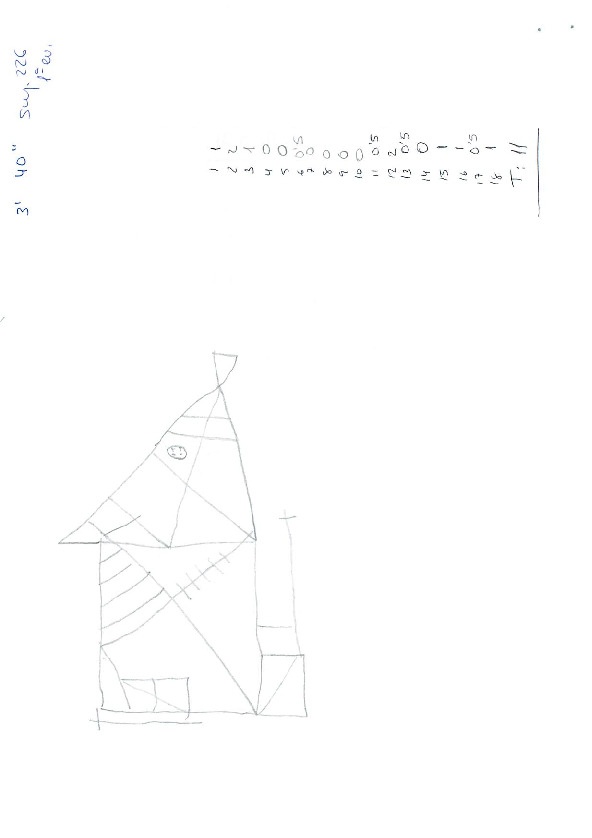 3' 40'' Suj. 226
1ª ev.
1 1
2 2
3 1
4 0
5 0
6 0'5
7 0
8 0
9 0
10 0
11 0'5
12 2
13 0'5
14 0
15 1
16 1
17 0'5
18 1
T: 11